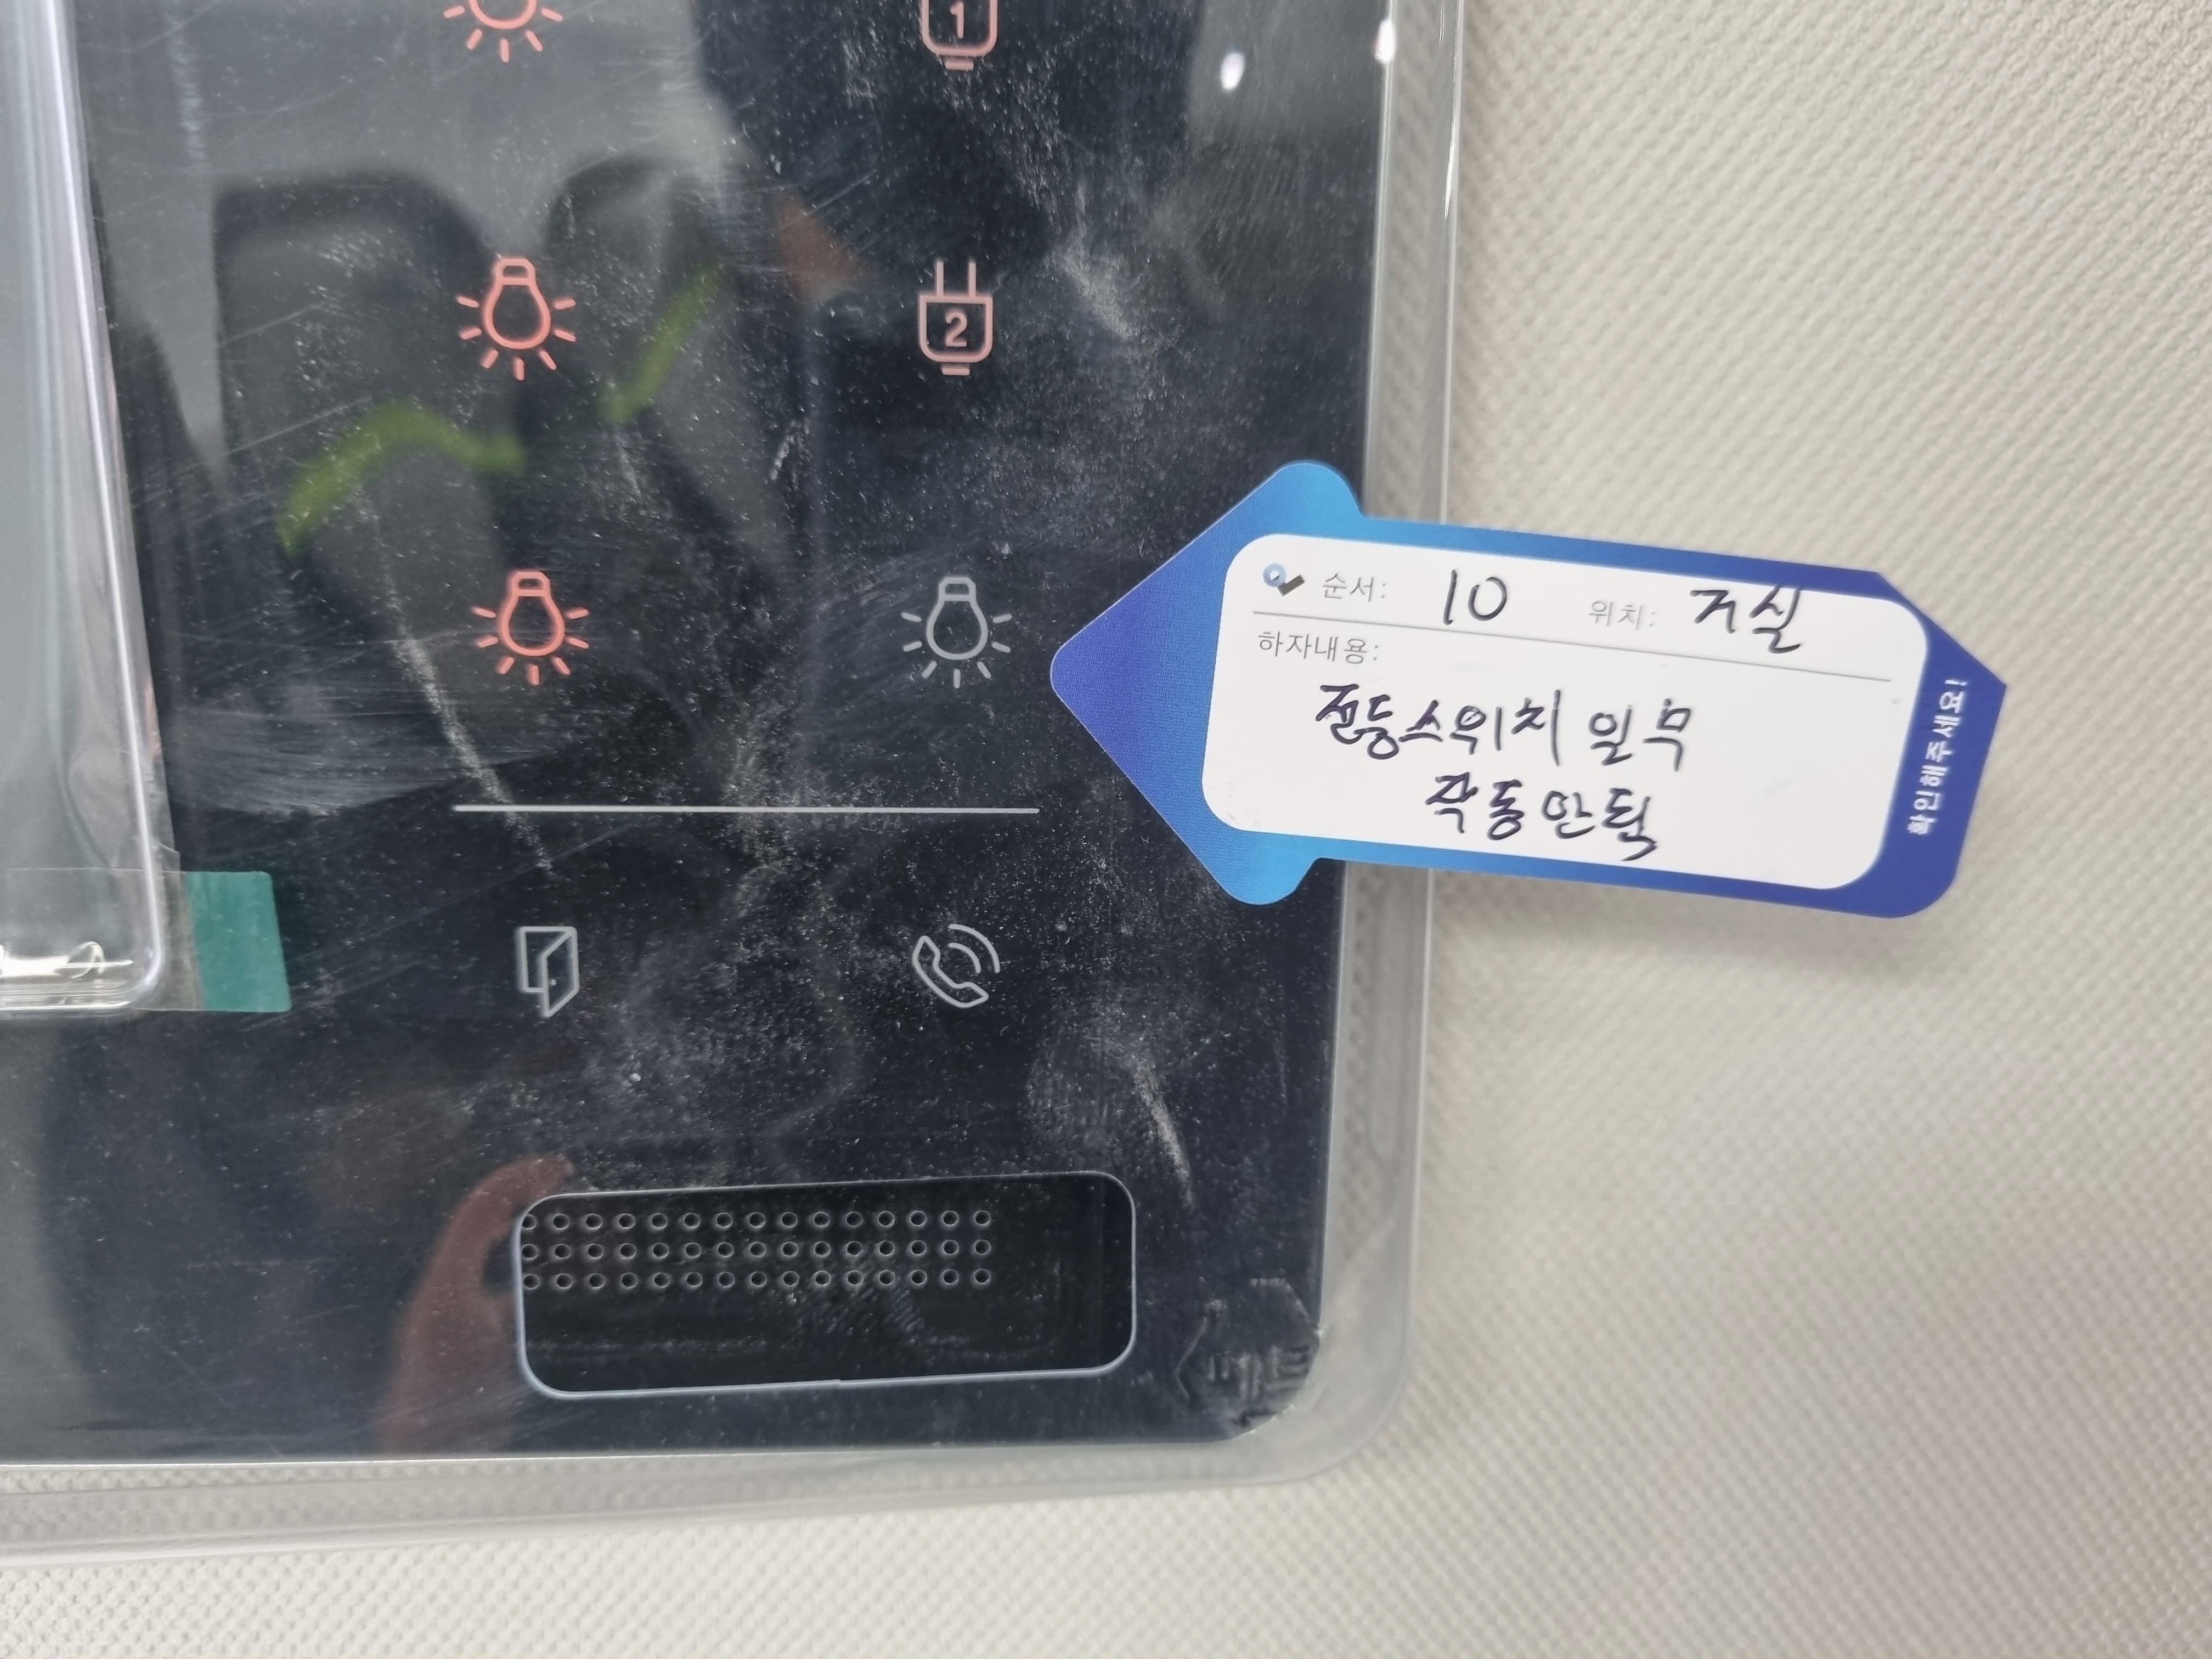 1
2
순서: 10 위치: 거실
하자내용:
전등스위치 일부
작동안됨
확인해주세요!